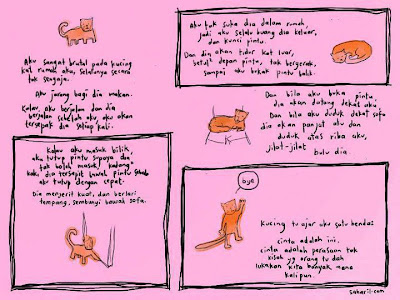 Aku sangat brutal pada kucing
kat rumah aku, selalunya secara
tak sengaja.
Aku jarang bagi dia makan.
Kalau aku berjalan dan dia
berjalan sebelah aku, aku akan
tersepak dia setiap kali.
Kalau aku masuk bilik,
aku tutup pintu supaya dia
tak boleh masuk, kadang²
kaki dia tersepit bawah pintu sebab
aku tutup dengan cepat.
Dia menjerit kuat, dan berlari
tempang, sembunyi bawah sofa.
Aku tak suka dia dalam rumah,
jadi aku selalu buang dia keluar,
dan kunci pintu
Dan dia akan tidur kat luar,
betul² depan pintu, tak bergerak,
sampai aku bukak pintu balik.
Dan bila aku buka pintu
dia akan datang dekat aku
Dan bila aku duduk dekat sofa
dia akan panjat aku dan
duduk atas riba aku,
jilat-jilat bulu dia
bye
Kucing tu ajar aku satu benda:
cinta adalah ini,
cinta adalah perasaan tak
kisah yg orang tu dah
lukakan kita banyak mana
kalipun.
saharil.com